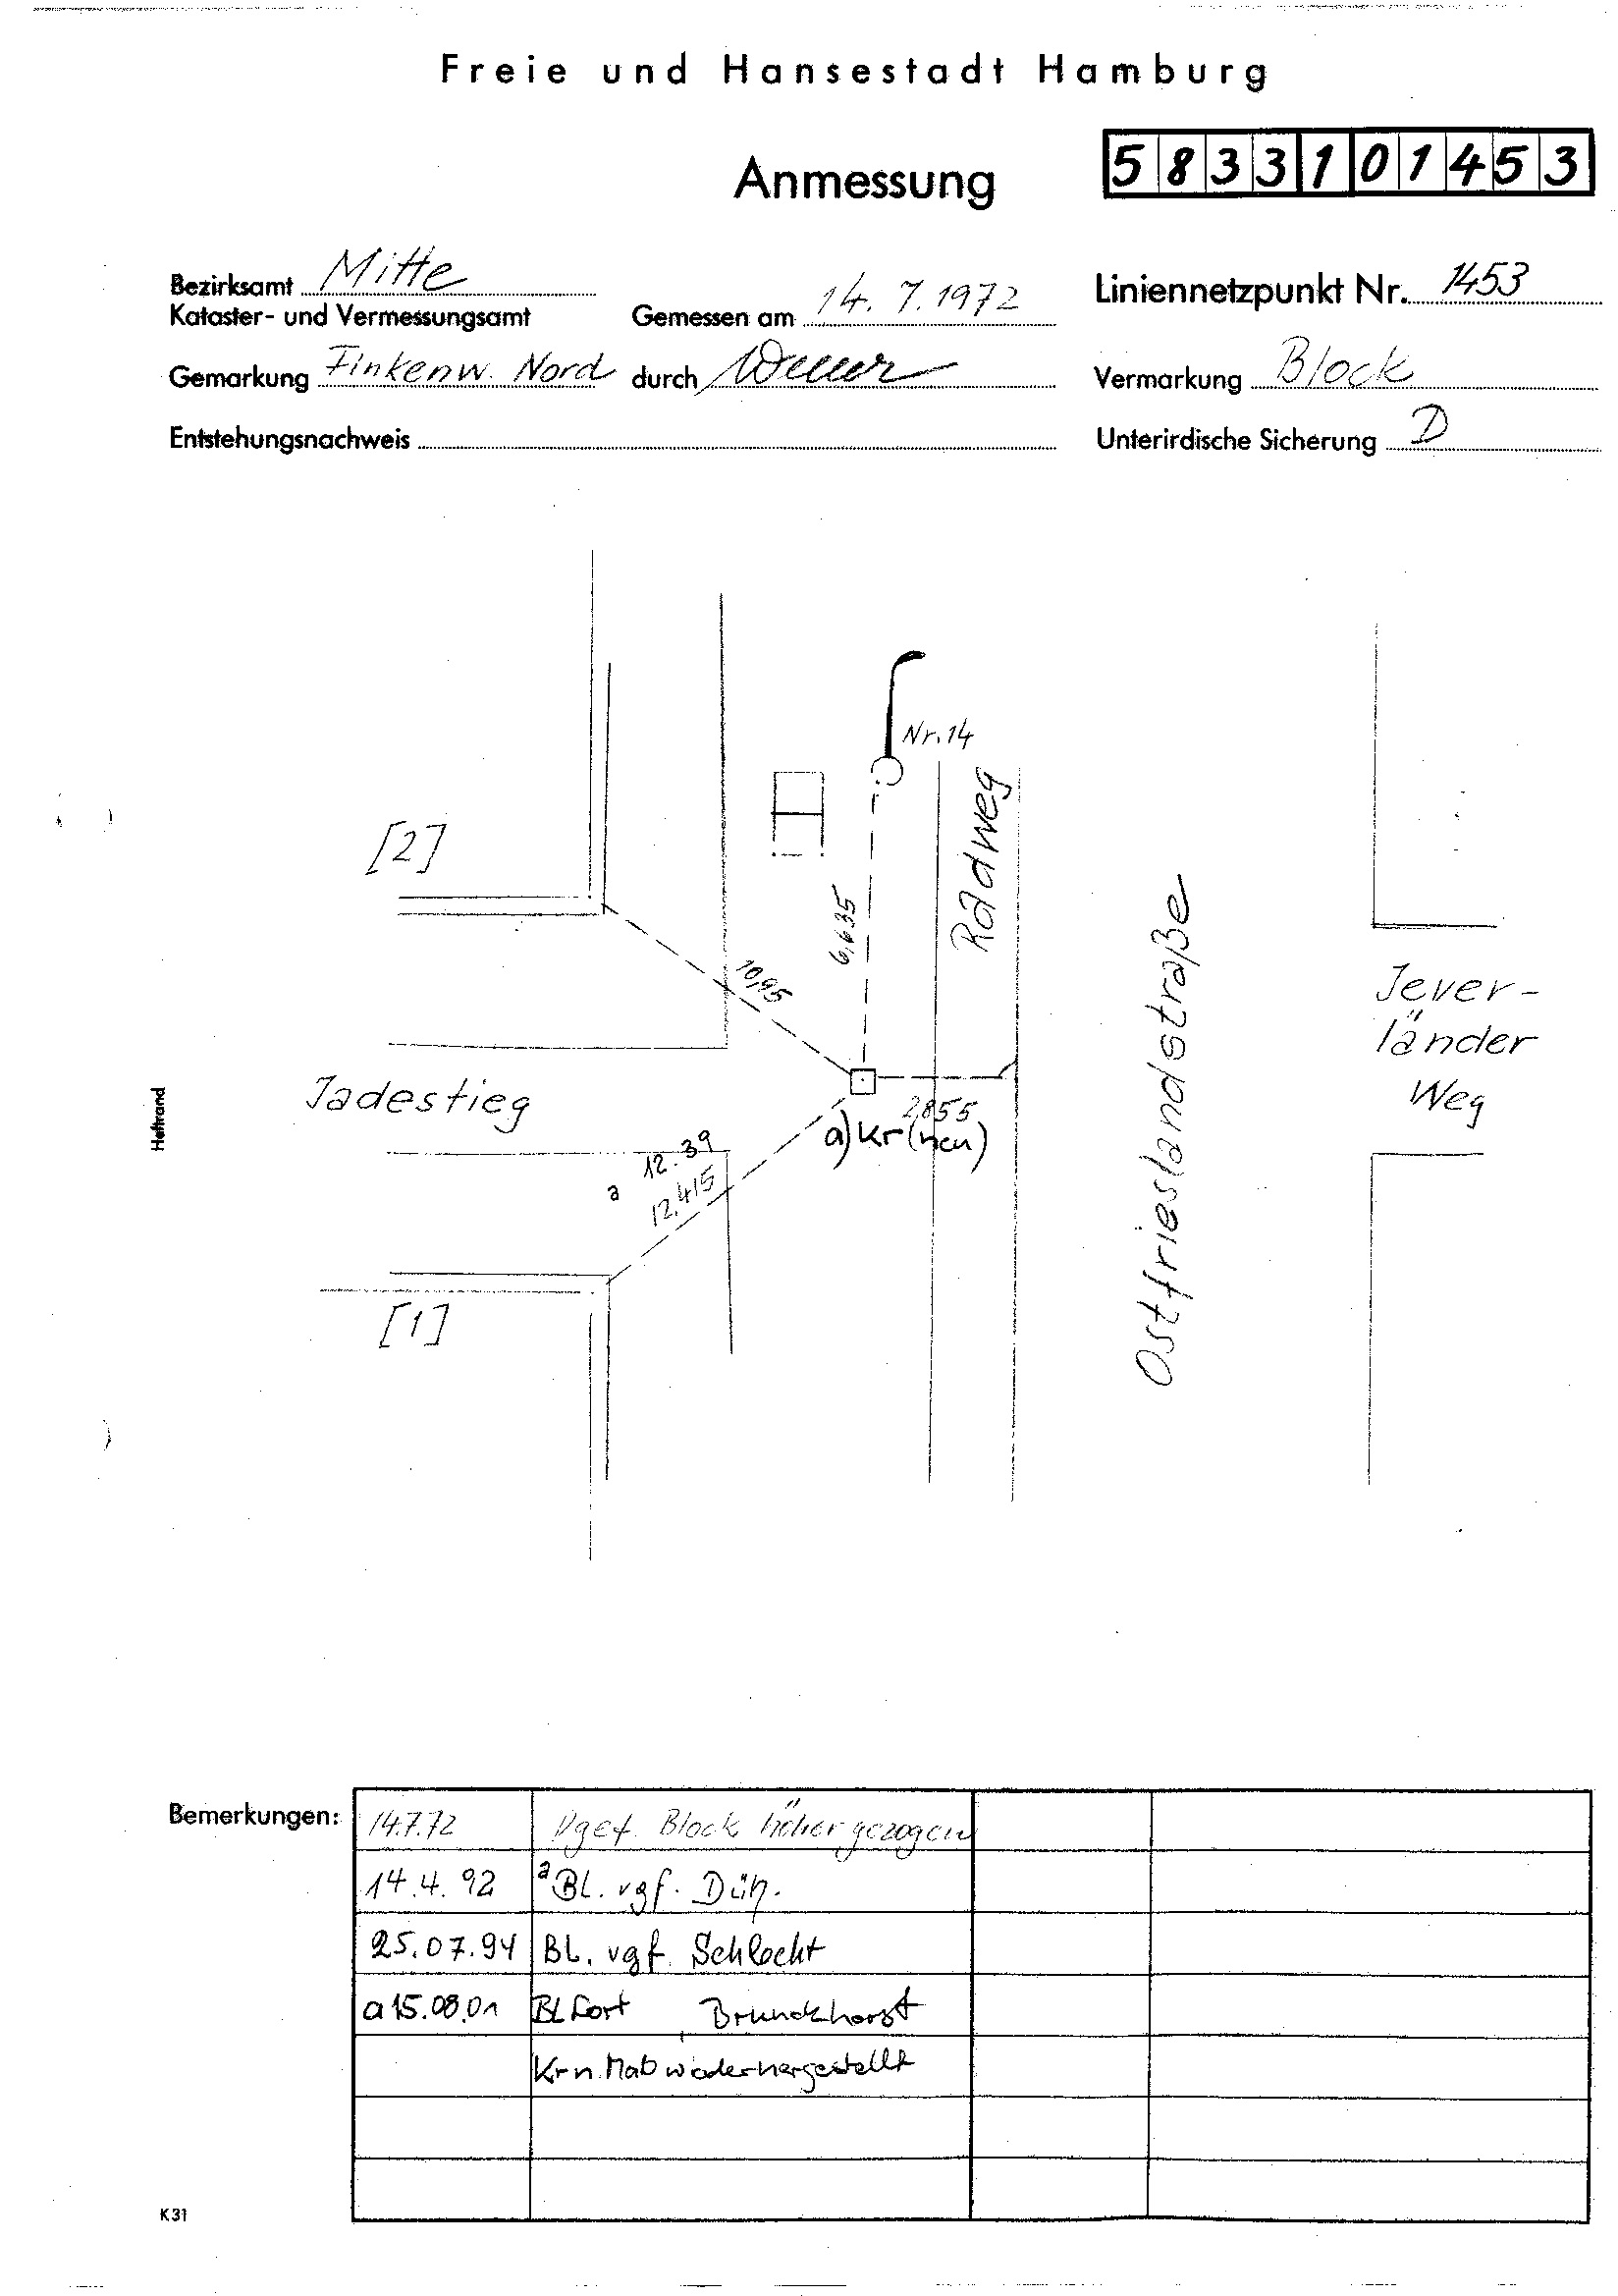 Freie und Hansestadt Hamburg
Anmessung
5833101453
Bezirksamt Mitte
Kataster- und Vermessungsamt
Gemessen am 14. 7. 1972
Liniennetzpunkt Nr. 1453
Gemarkung Finkenw. Nord
durch
Vermarkung Block
Entstehungsnachweis
Unterirdische Sicherung D
Nr. 14
Radweg
[2]
6,635
10,95
Ostfrieslandstraße
Jever-
länder
Weg
Jadestieg
2,855
a) Kr (neu)
a 12.39
12,415
[1]
Heftrand
Bemerkungen:
14.7.72 Vgef. Block höher gezogen
14.4.92 a BL. vgf.
25.07.94 BL. vgf. Schlecht
a 15.08.01 BL fort Brunckhorst
Kr n. Maß wiederhergestellt
K31